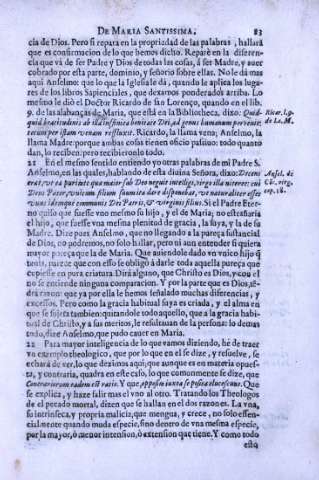 DE MARIA SANTISSIMA. 83
cia de Dios. Pero si repara en la propriedad de las palabras, hallarà
que es confirmacion de lo que hemos dicho. Reparè en la diferen-
cia que và de ser Padre y Dios de todas las cosas, à ser Madre, y auer
cobrado por esta parte, dominio, y señorio sobre ellas. No le dà mas
aqui Anselmo: que lo que la Iglesia le dà, quando le aplica los luga-
res de los libros Sapienciales, que dexamos ponderados arriba. Lo
mesmo le diò el Doctor Ricardo de san Lorenço, quando en el lib.
9. de las alabanças de Maria, que està en la Biblioteca, dixo: Quid- Ricar. l.9.
quid beatitudinis ab infinita bonitate Dei, ad genus humanum peruenit: de La. M.
totum per istam venam refluxit. Ricardo, la llama vena; Anselmo, la
llama Madre: porque ambas cosas tienen oficio pasiuo: todo quanto
dan, lo reciben: pero recibieronlo todo.
21 En el mesmo sentido entiendo yo otras palabras de mi Padre S.
Anselmo, en las quales, hablando de esta diuina Señora, dixo: Decens Ansel. de
erat, vt ea puritate qua maior sub Deo nequit intelligi, virgo illa niteret: cui Cōc. virg.
Deus Pater, vnicum filium suum ita dare disponebat, vt naturaliter esset cap. 18.
vnus idemque communis Dei Patris, & virginis filius. Si el Padre Eter-
no quiso que fuesse vno mesmo su hijo, y el de Maria; no estrañaria
el hijo, que fuesse vna mesma plenitud de gracia, la suya, y la de su
Madre. Dize pues Anselmo, que no llegando a la pareça sustancial
de Dios, no podremos, no solo hallar, pero ni aun entender si quiera
mayor pureça que la de Maria. Que auiendole dado vn voice hijo
parece que con esso se obligò à darle toda aquella pureça que
cupiesse en pura criatura Dirà alguno, que Christo es Dios, y con el
no se entiende ninguna comparacion. Y por la parte que es Dios, tē-
drà razon: que ya por ella le hemos señalado muchas diferencias, y
excessos. Pero como la gracia habitual suya es criada, y el alma en
que se sujeta tambien: quitandole todo aquello, que a la gracia habi-
tual de Christo, y a sus meritos, le resultauan de la persona: lo demas
todo, dize Anselmo, que pudo cauer en Maria.
22 Para mayor inteligencia de lo que vamos diziendo, hè de traer
vn exemplo theologico, que por lo que en el se dize, y resuelve, se
echarà de ver, lo que dezimos aqui, que aunque es en materia opues-
ta, y contraria, quadra en este caso, lo que comunmente se dize, que
Contrariorum eadem est ratio. Y que, opposita iuxta se posita elucescunt. Que
se explica, y haze salir mas el vno al otro. Tratando los Theologos
de el pecado mortal, dizen que se hallan en el dos razones. La vna,
su intrinseca, y propria malicia, que mengua, y crece, no solo essen-
cialmente quando muda especie, sino dentro de vna mesma especie,
por la mayor, ò menor intension, ò extension que tiene. Y como todo
esto